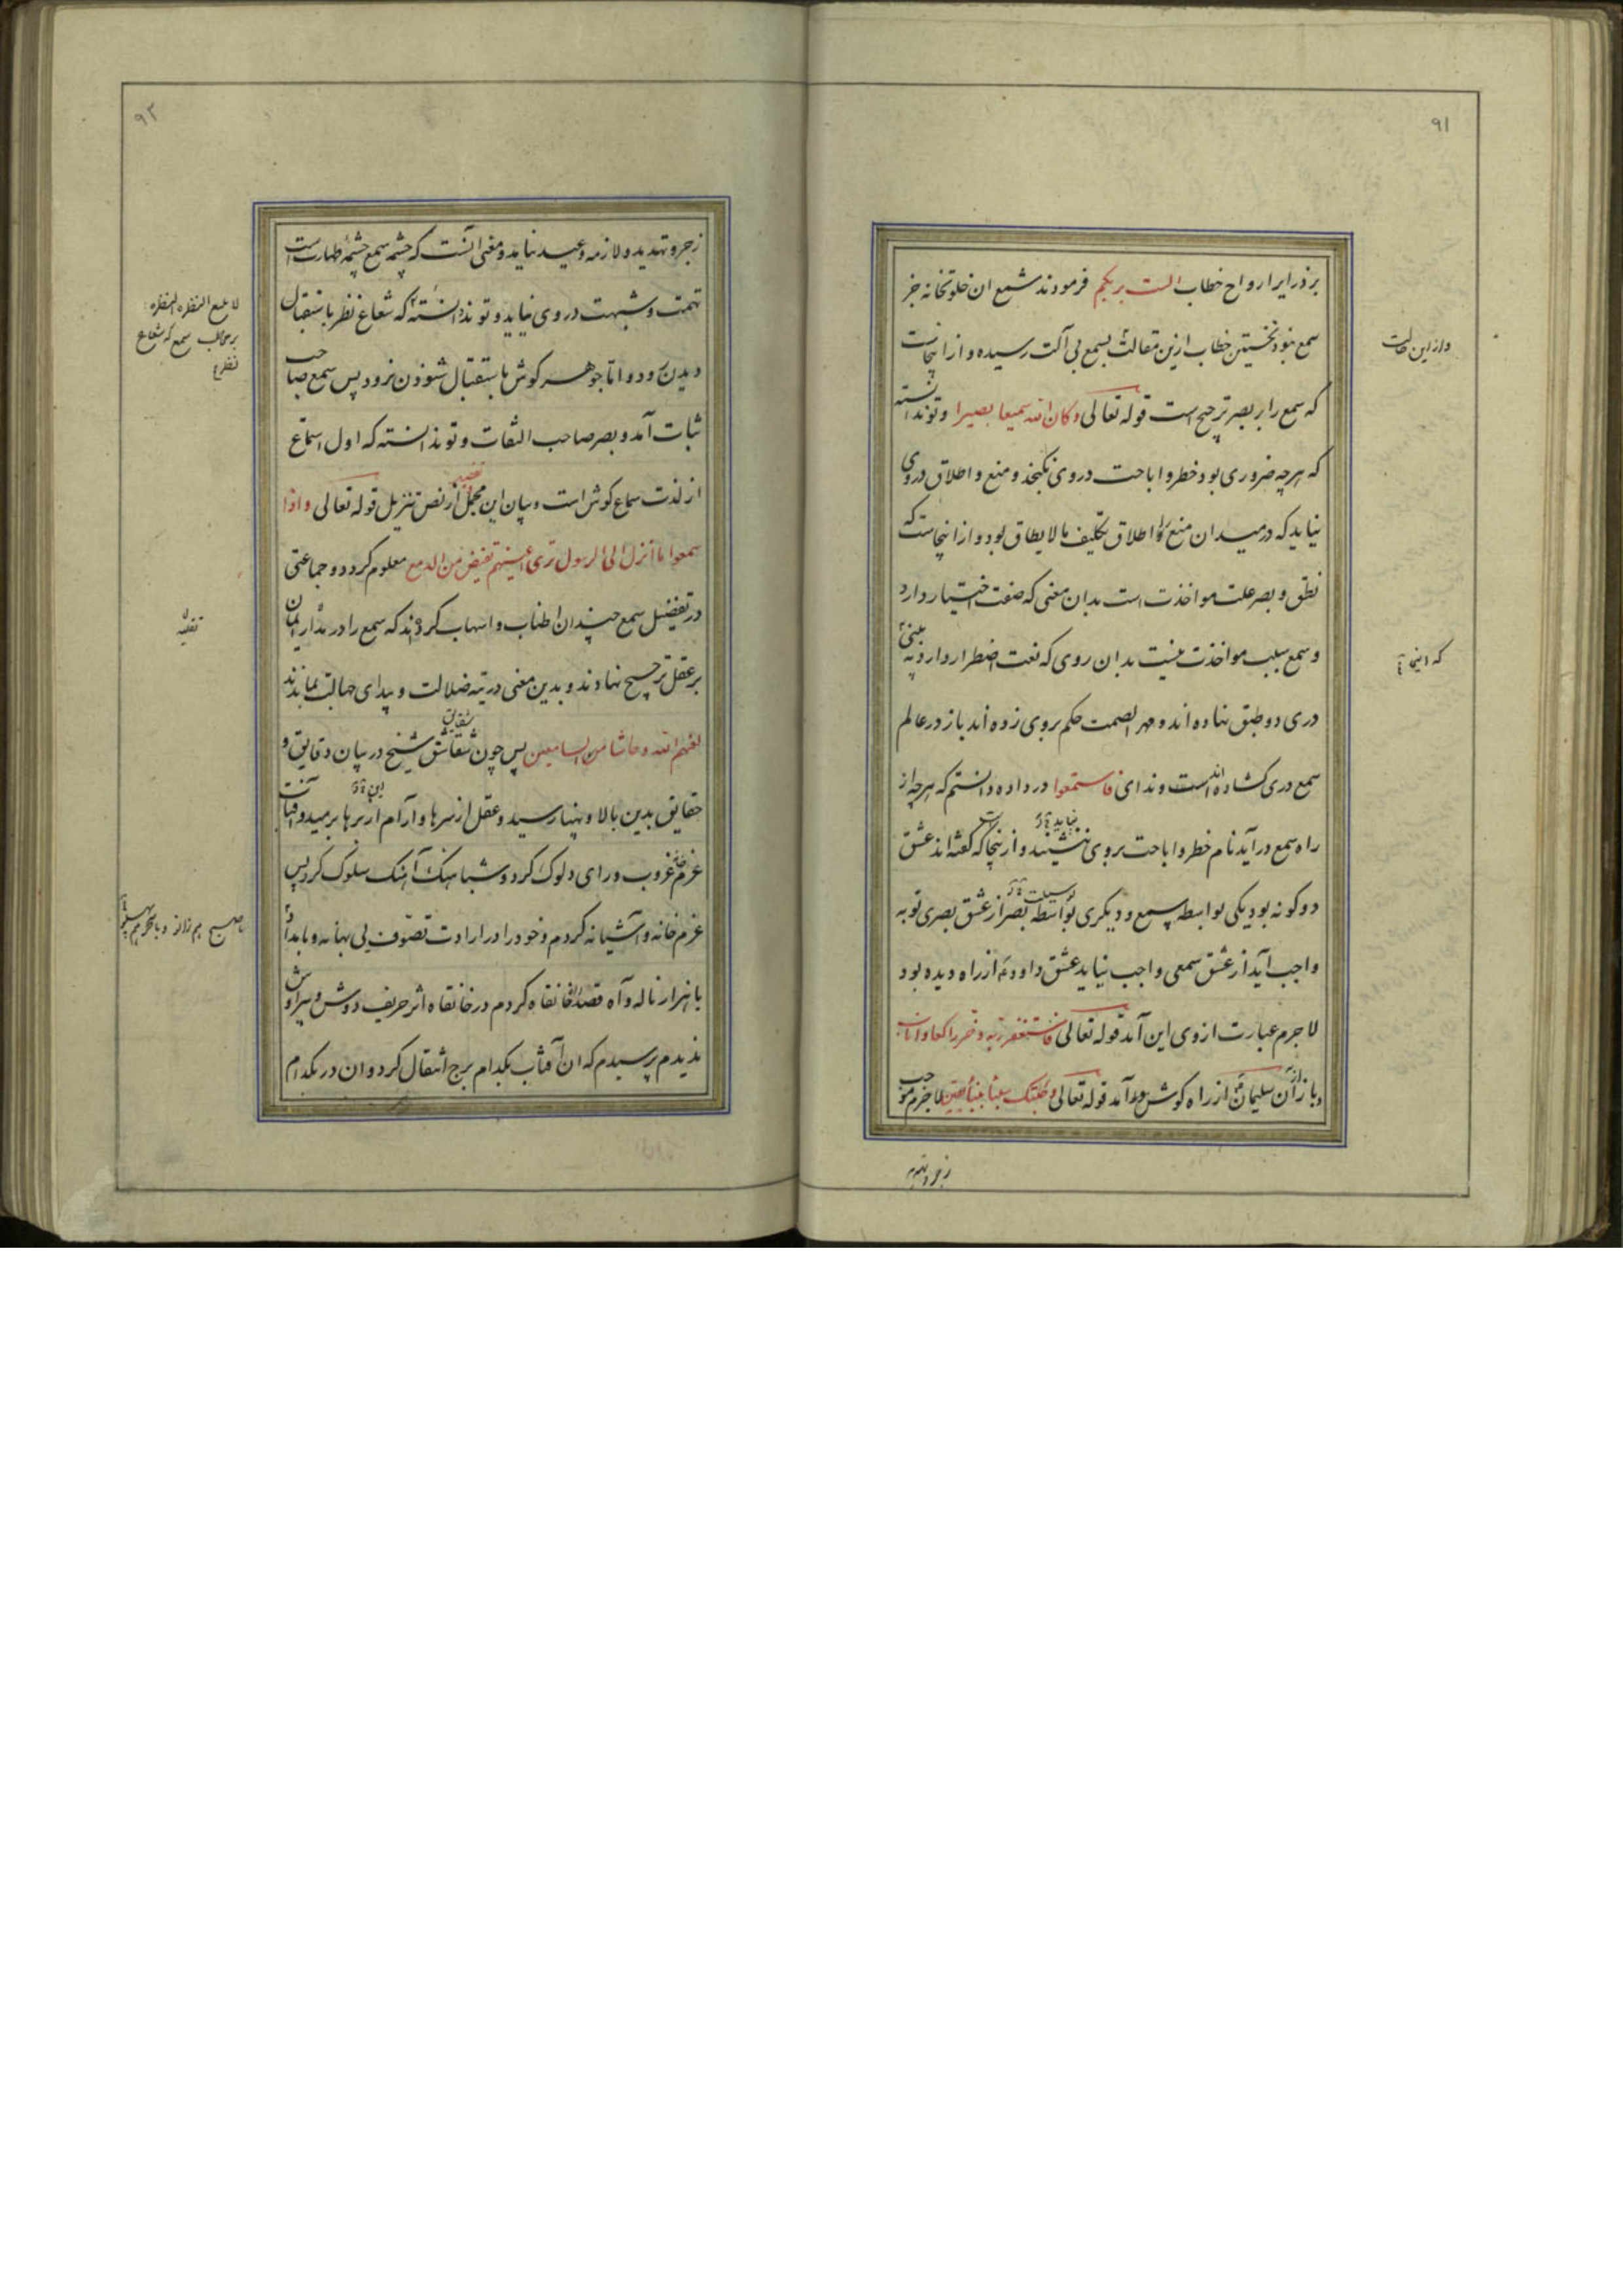 ۹۱
بر ذرایر ارواح خطاب الست بربکم فرمودند شمع ان خلوتخانه جز
سمع نبود نخستین خطاب ازین مقالت بسمع بی آلت رسیده و از اینجاست
که سمع را بر بصر ترجیح است قوله تعالی وکان الله سمیعا بصیرا و تو ندانسته
که هرچه ضروری بود خطر و اباحت در وی نگنجد و منع و اطلاق در وی
نیاید که در میدان منع و اطلاق تکلیف ما لا یطاق بود و از اینجاست که
نطق و بصر علت مواخذت است بدان معنی که صفت اختیار دارد
و سمع سبب مواخذت نیست بدان روی که نعت اضطرار دارد به بینی
دری دو طبق نهاده اند و مهر الصمت حکم بروی زده اند باز در عالم
سمع دری کشاده است و ندای فاستمعوا در داده دانستم که هرچه از
راه سمع در آید نام خطر و اباحت بروی ننشیند و از ینجا که گفته اند عشق
دو گونه بود یکی بواسطه سمع و دیگری بواسطه بصر از عشق بصری توبه
واجب آید از عشق سمعی واجب نیاید عشق داود از راه دیده بود
لاجرم عبارت از وی این آمد قوله تعالی فاستغفر ربه و خر راکعا واناب
و باز آن سلیمان از راه گوش در آمد قوله تعالی وجئتک من سبأ بنبأ یقین لاجرم موجب
و از این حالت
که اینجا
زجر و تهدید
۹۲
زجر و تهدید و لازمه وعید نیامد و معنی آنست که چشمه سمع چشمه طهارت است
تهمت و شبهت در وی نیاید و تو ندانسته که شعاع نظر باستقبال
دیدن رود و اما جوهر گوش باستقبال شنودن نرود پس سمع صاحب
ثبات آمد و بصر صاحب التفات و تو ندانسته که اول استماع
از لذت سماع گوش است و بیان این مجمل از نص تنزیل قوله تعالی و اذا
سمعوا ما انزل الی الرسول تری اعینهم تفیض من الدمع معلوم گردد و جماعتی
در تفضیل سمع چندان اطناب و اسهاب کرده اند که سمع را در مدار ایمان
بر عقل ترجیح نهادند و بدین معنی در تیه ضلالت و بیدای جهالت بماندند
لعنهم الله و حاشا من السامعین پس چون شقاشق شیخ در بیان دقایق و
حقایق بدین بالا و پهنا رسید و عقل از سرها و آرام از برها برمید و آفتاب
عزم غروب و رای دلوک کرد و شباهنگ آهنگ سلوک کرد پس
عزم خانه و آشیانه کردم و خود را در ارادت تصوف بی بهانه و بامداد
با هزار ناله و آه قصد خانقاه کردم در خانقاه اثر حریف دوش و پیراوش
ندیدم پرسیدم که ان آفتاب بکدام برج انتقال کرد و ان در بکدام